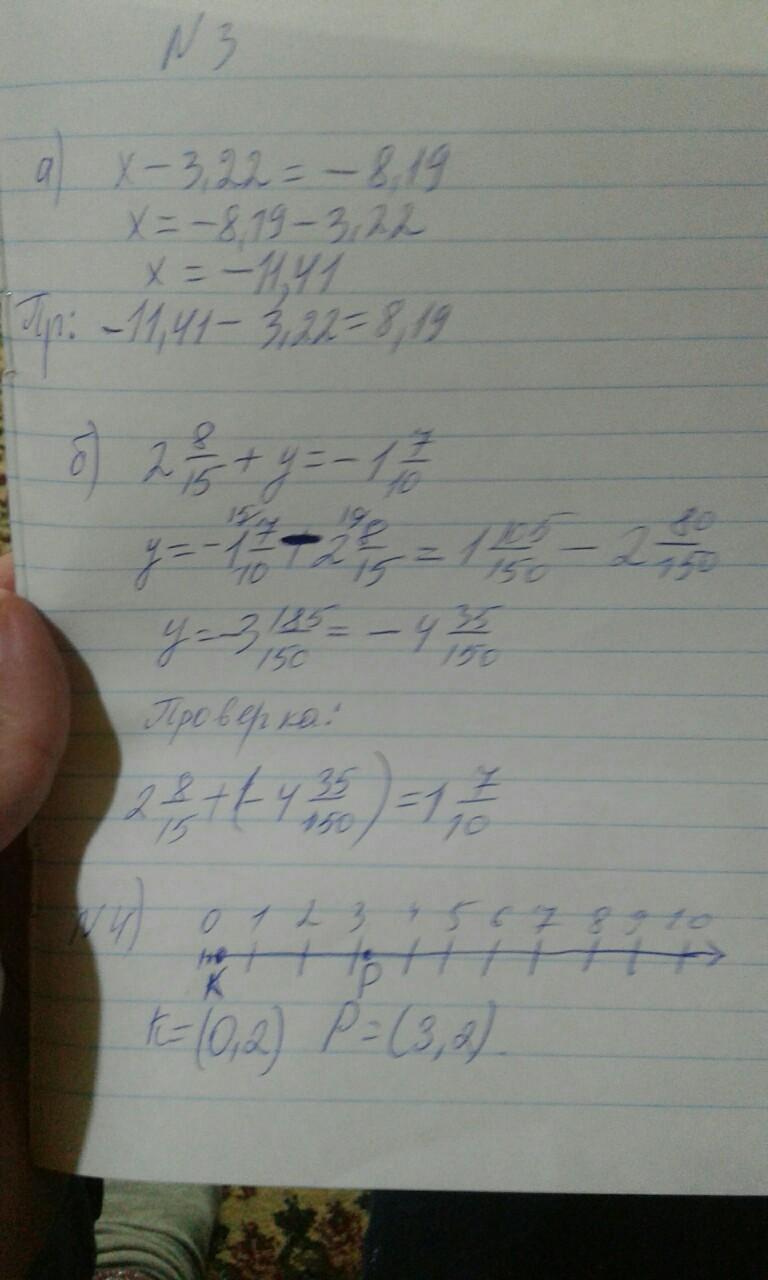 N 3
а) x - 3,22 = - 8,19
x = -8,19 - 3,22
x = -11,41
Пр: -11,41 - 3,22 = 8,19
б) 2 8/15 + y = - 1 7/10
y = - 1 7/10 - 2 8/15 = 1 105/150 - 2 80/150
y = -3 185/150 = - 4 35/150
Проверка:
2 8/15 + (- 4 35/150) = 1 7/10
N 4) 0 1 2 3 4 5 6 7 8 9 10
K P
K = (0,2) P = (3,2).